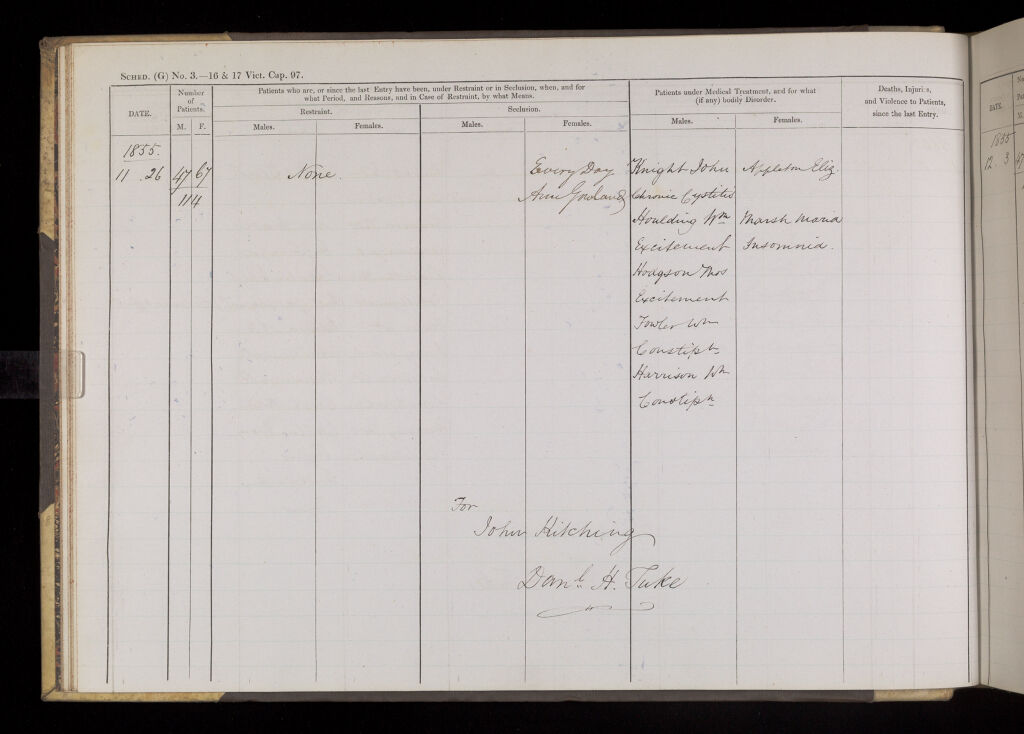 SCHED. (G) No. 3.—16 & 17 Vict. Cap. 97.
DATE.
Number of Patients.
M. F.
Patients who are, or since the last Entry have been, under Restraint or in Seclusion, when, and for
what Period, and Reasons, and in Case of Restraint, by what Means.
Restraint.
Seclusion.
Males. Females. Males. Females.
Patients under Medical Treatment, and for what
(if any) bodily Disorder.
Males. Females.
Deaths, Injuries,
and Violence to Patients,
since the last Entry.
1855.
11 . 26 47 67 None. Every Day Knight John Appleton Eliz.
114 Ann Gowland Chronic Cystitis
Houlding Wm Marsh Maria
Excitement Insomnia.
Hodgson Thos
Excitement
Fowler Wm
Constipn
Harrison Wm
Constipn
For
John Kitching
Danl. H. Tuke
DATE.
1855
12 . 3 47